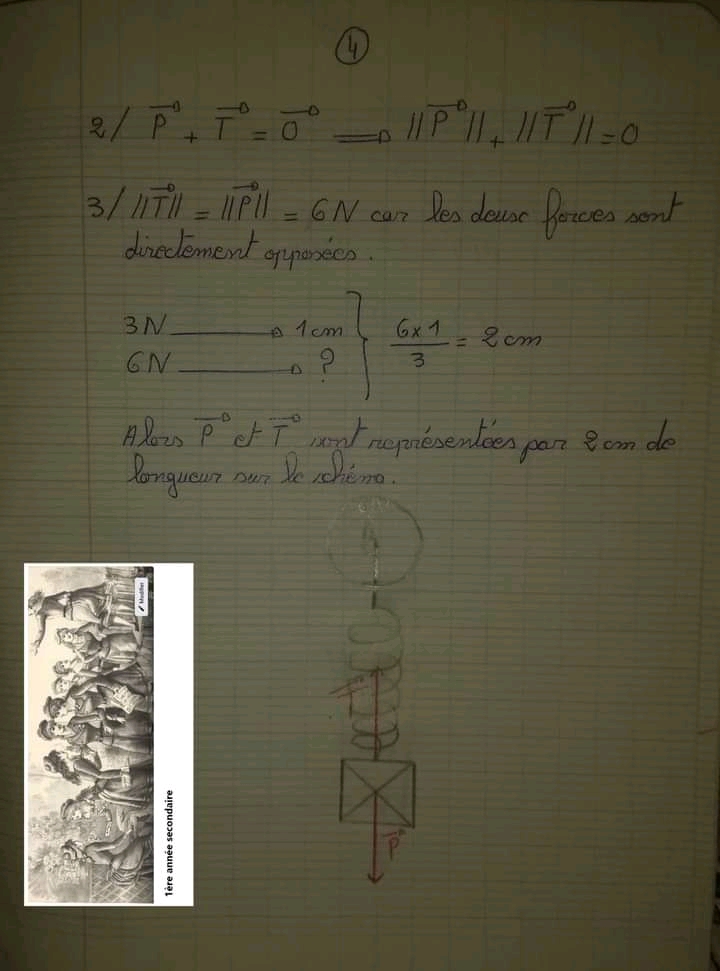 4
2/ P⃗ + T⃗ = 0⃗ ⟹ ||P⃗|| + ||T⃗|| = 0
3/ ||T⃗|| = ||P⃗|| = 6N car les deux forces sont
directement opposées.
3N → 1cm
6N → ?
} 6x1/3 = 2cm
Alors P⃗ et T⃗ sont représentées par 2cm de
longueur sur le schéma.
T⃗
P⃗
Modifier
1ère année secondaire